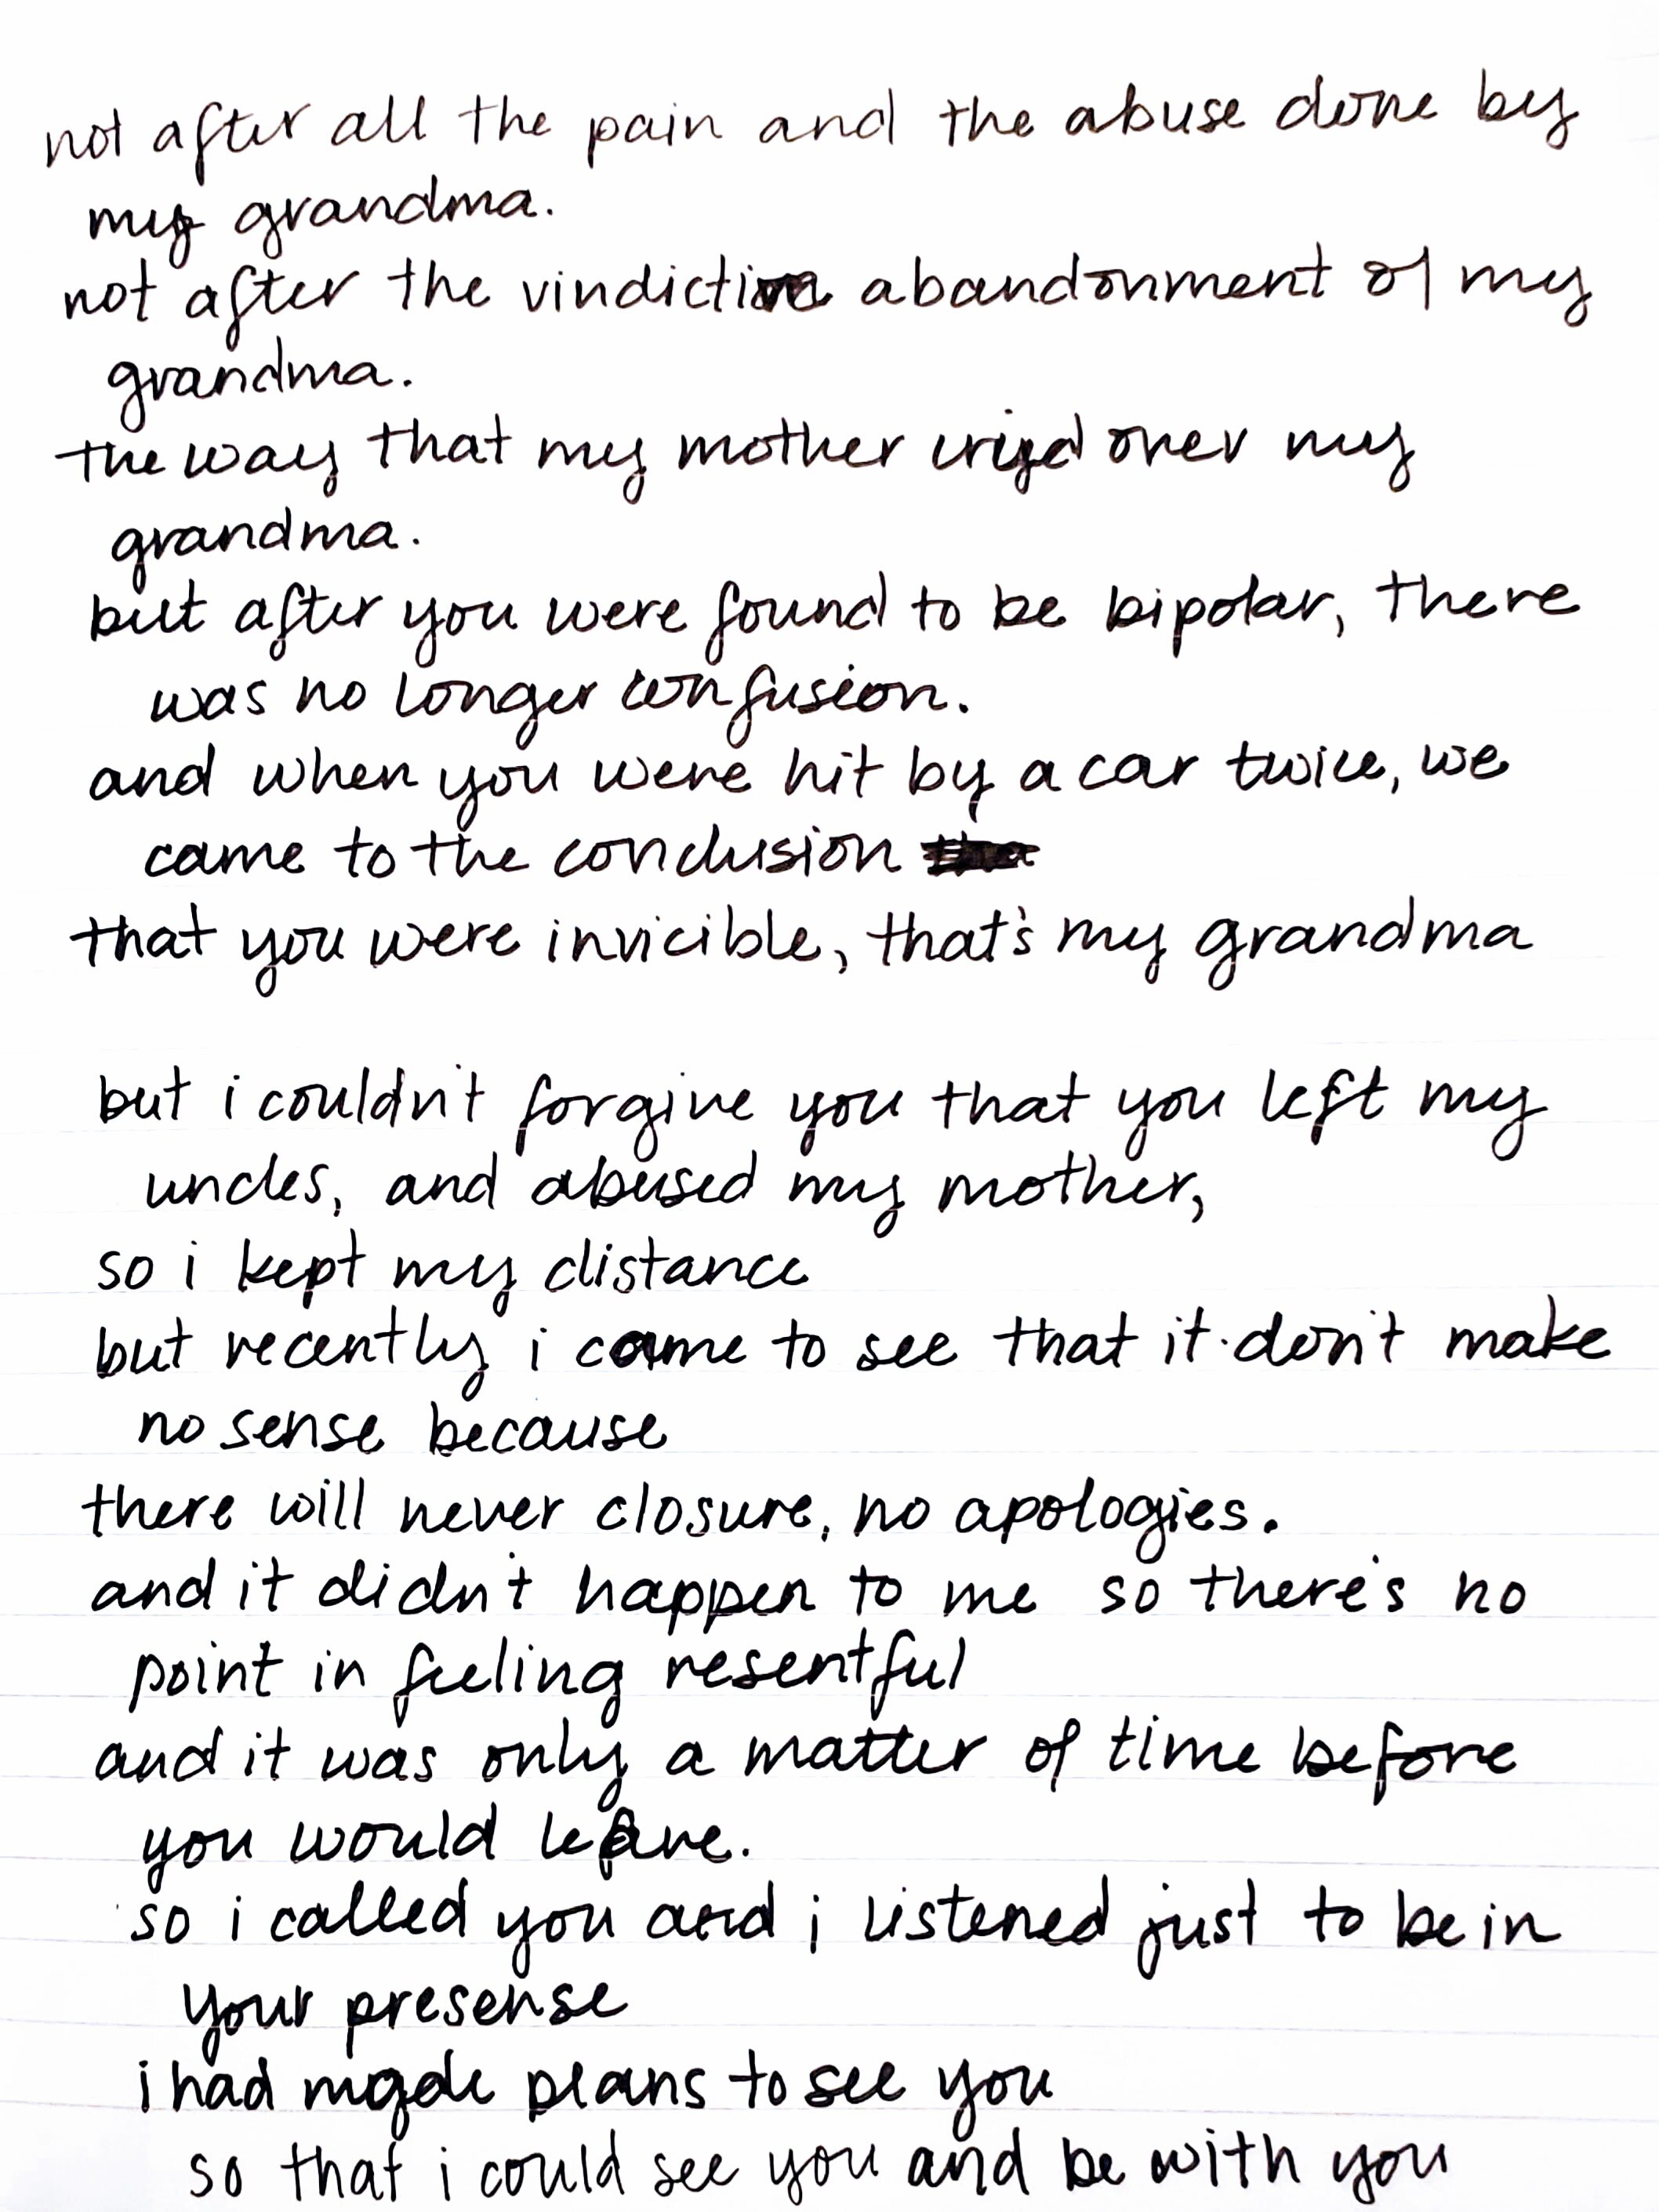 not after all the pain and the abuse done by
my grandma.
not after the vindictive abandonment of my
grandma.
the way that my mother cried over my
grandma.
but after you were found to be bipolar, there
was no longer confusion.
and when you were hit by a car twice, we
came to the conclusion
that you were invicible, that's my grandma
but i couldn't forgive you that you left my
uncles, and abused my mother,
so i kept my distance
but recently i came to see that it don't make
no sense because
there will never closure, no apologies.
and it didn't happen to me so there's no
point in feeling resentful
and it was only a matter of time before
you would leave.
so i called you and i listened just to be in
your presense
i had made plans to see you
so that i could see you and be with you